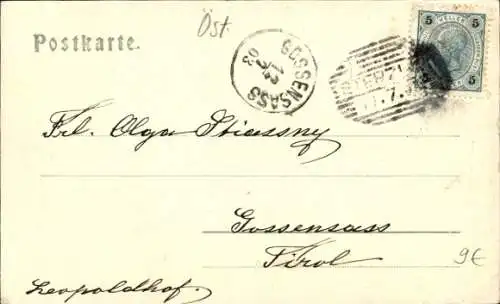 Öst.
Postkarte.
GOSSENSASS
03
5 HELLER 5
5 5
7.
Frl. Olga Stiassny
Gossensass
Tirol
9€
Leopoldhof.